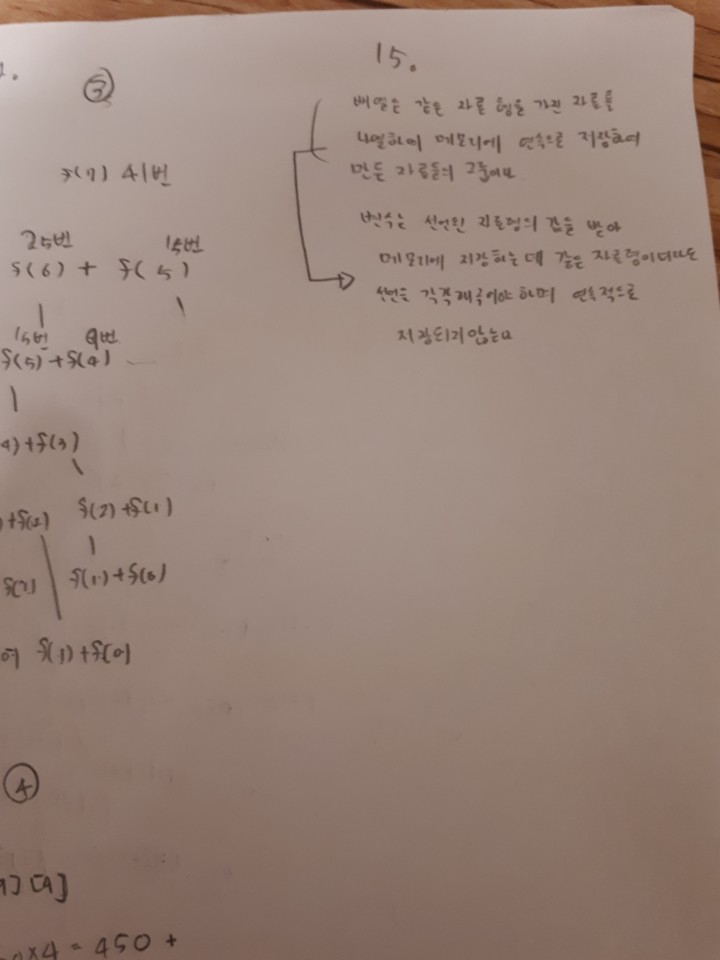 ③
f(7) 41번
25번 15번
f(6) + f(5)
15번 9번
f(5)+f(4)
4)+f(3)
+f(2) f(2)+f(1)
f(1)+f(0)
f(1)+f(0)
④
][9]
×4 = 450 +
15.
배열은 같은 자료 형을 가진 자료를
나열하여 메모리에 연속으로 저장하여
만든 자료들의 그룹이고
변수는 선언된 자료형의 값을 받아
메모리에 저장하는데 같은 자료형이더라도
선언을 각각 해주어야 하며 연속적으로
저장되지 않는다